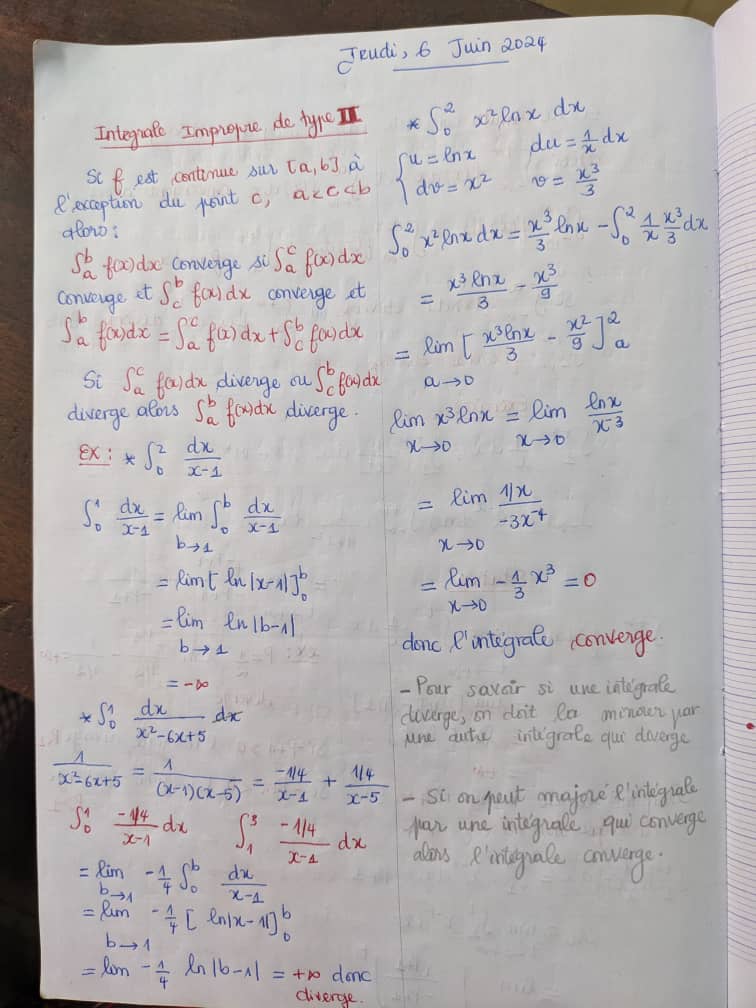 Jeudi, 6 Juin 2024
Integrale Impropre de type II
Si f est continue sur [a,b] à
l'exception du point c, a<c<b
alors:
∫_a^b f(x)dx converge si ∫_a^c f(x)dx
converge et ∫_c^b f(x)dx converge et
∫_a^b f(x)dx = ∫_a^c f(x)dx + ∫_c^b f(x)dx
Si ∫_a^c f(x)dx diverge ou ∫_c^b f(x)dx
diverge alors ∫_a^b f(x)dx diverge.
Ex: * ∫_0^2 dx/(x-1)
∫_0^1 dx/(x-1) = lim_{b→1} ∫_0^b dx/(x-1)
= lim [ ln|x-1| ]_0^b
= lim_{b→1} ln|b-1|
= -∞
* ∫_0^1 dx/(x²-6x+5) dx
1/(x²-6x+5) = 1/((x-1)(x-5)) = (-1/4)/(x-1) + (1/4)/(x-5)
∫_0^1 (-1/4)/(x-1) dx ∫_1^3 (-1/4)/(x-1) dx
= lim_{b→1} -1/4 ∫_0^b dx/(x-1)
= lim_{b→1} -1/4 [ ln|x-1| ]_0^b
= lim -1/4 ln|b-1| = +∞ donc
diverge.
* ∫_0^2 x² ln x dx
{ u = ln x du = 1/x dx
dv = x² v = x³/3
∫_0^2 x² ln x dx = x³/3 ln x - ∫_0^2 1/x x³/3 dx
= x³ ln x/3 - x³/9
= lim_{a→0} [ x³ ln x/3 - x²/9 ]_a^2
lim_{x→0} x³ ln x = lim_{x→0} ln x/x^-3
= lim_{x→0} (1/x)/(-3x^-4)
= lim_{x→0} -1/3 x³ = 0
donc l'intégrale converge.
- Pour savoir si une intégrale
diverge, on doit la minorer par
une autre intégrale qui diverge
- Si on peut majoré l'intégrale
par une intégrale qui converge
alors l'intégrale converge.